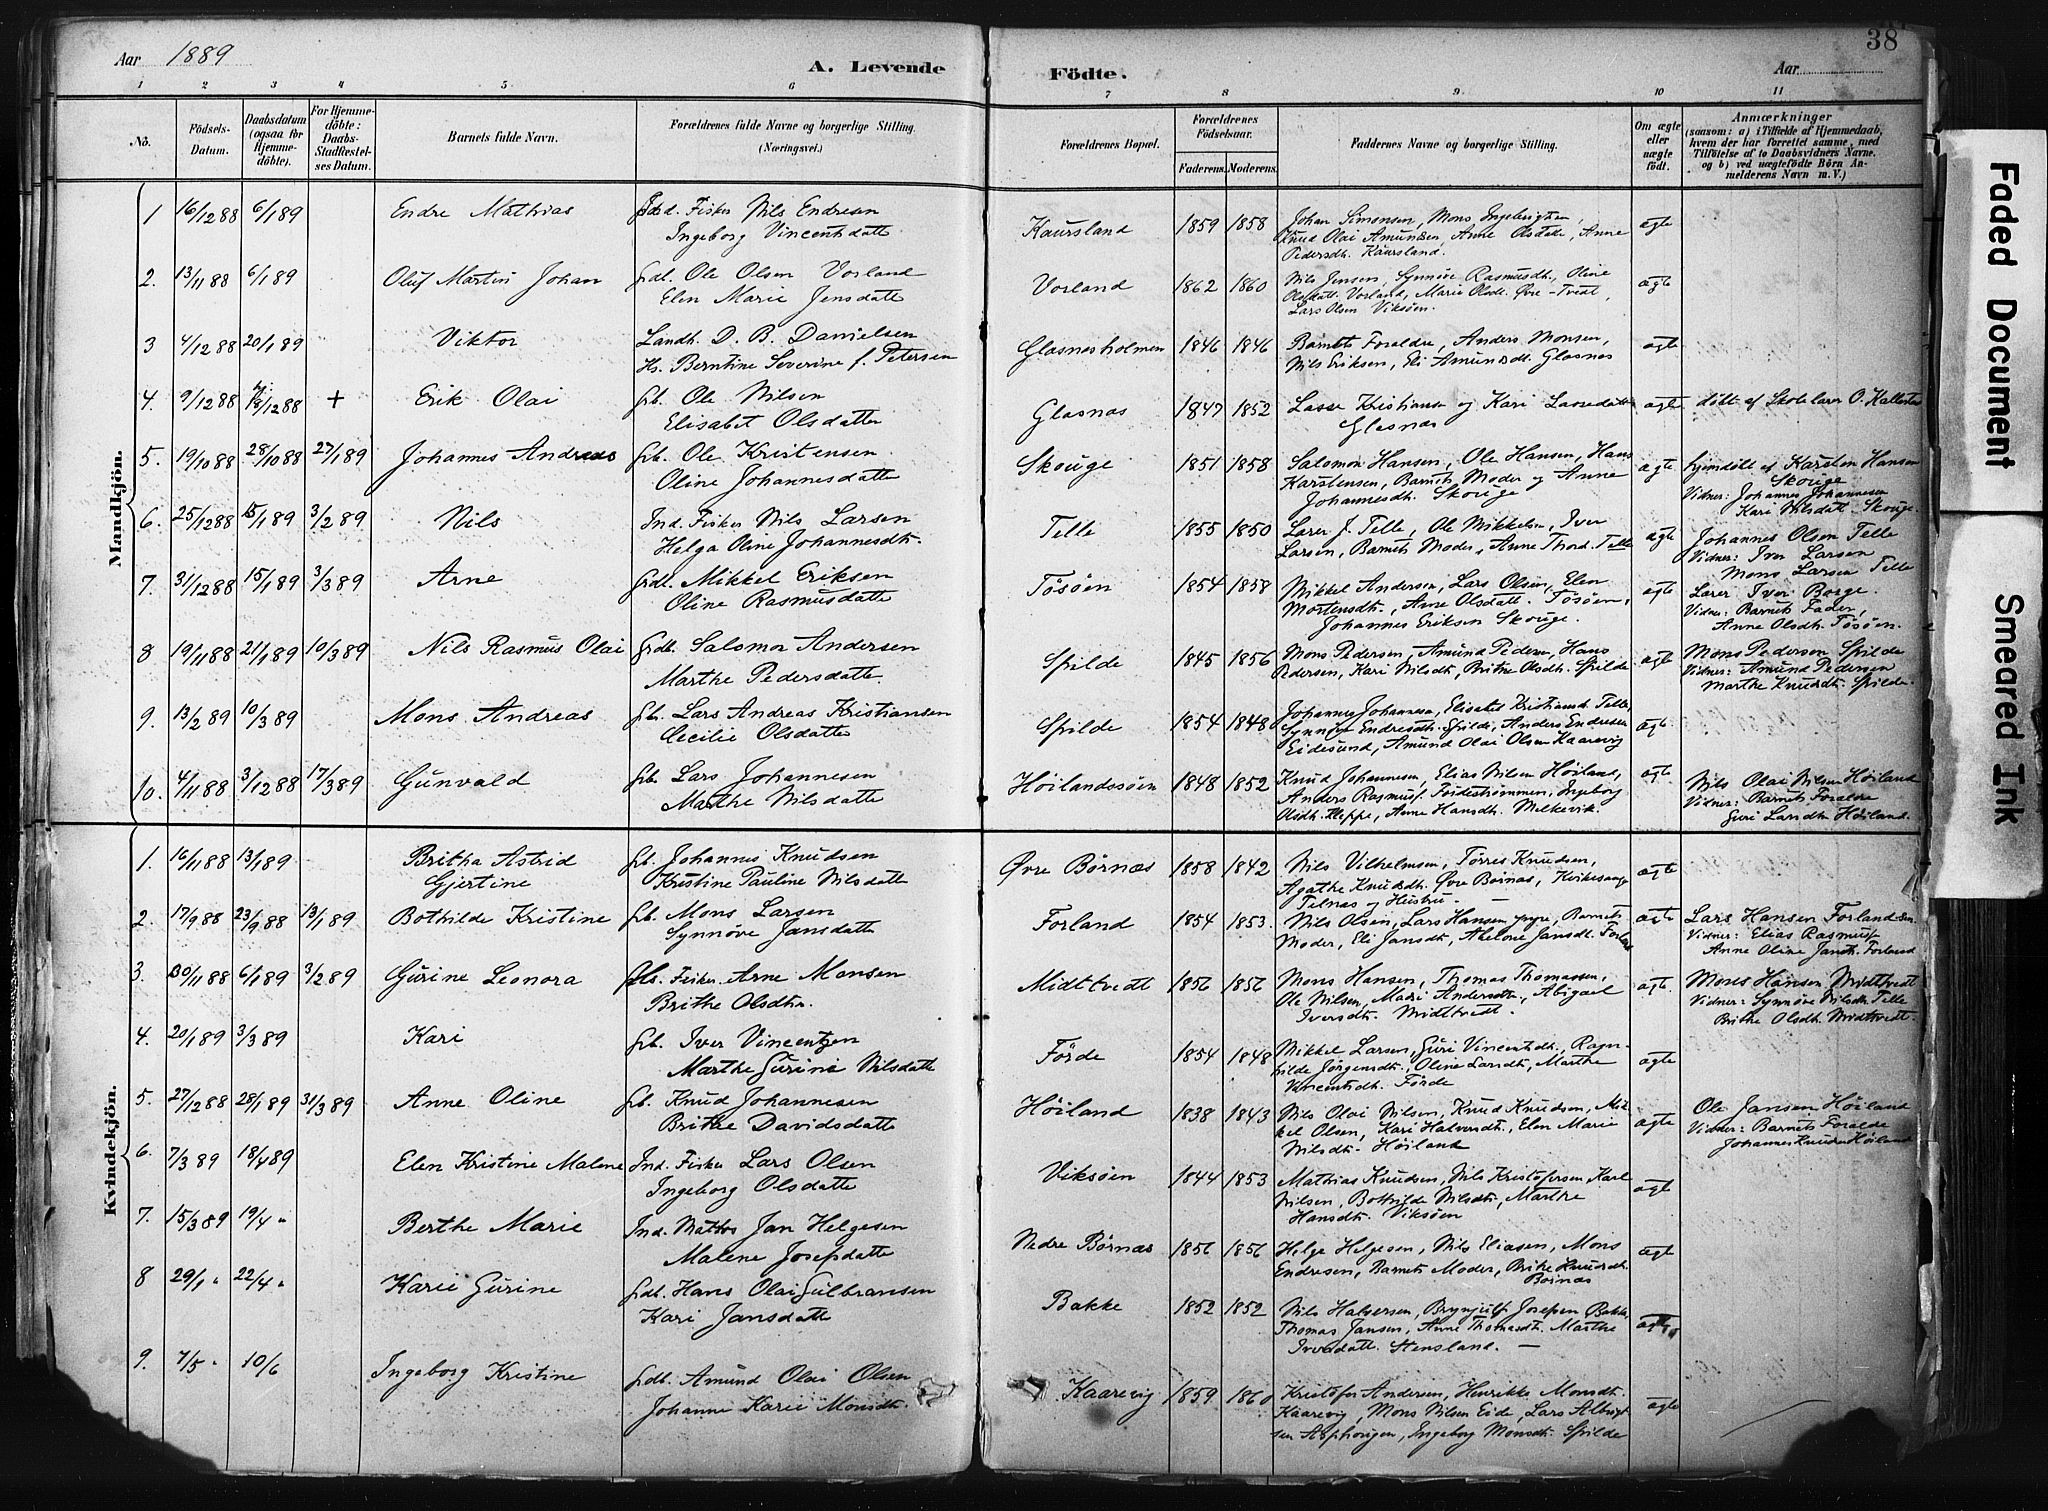 Aar 1889
A. Levende
Födte.
Aar
38
1 2 3 4 5 6 7 8 9 10 11
No.
Födsels-Datum.
Daabsdatum (ogsaa for Hjemmedöbte).
For Hjemmedöbte: Daabs-Stadfæstelses Datum.
Barnets fulde Navn.
Forældrenes fulde Navne og borgerlige Stilling. (Næringsvei.)
Forældrenes Bopæl.
Forældrenes Födselsaar.
Faderens. Moderens.
Faddernes Navne og borgerlige Stilling.
Om ægte eller uægte födt.
Anmærkninger
(saasom: a) i Tilfælde af Hjemmedaab,
hvem der har forrettet samme, med
Tilföielse af to Daabsvidners Navne.
og b) ved uægtefödte Börn An-
melderens Navn m. V.)
Mandkjön.
1 16/12 88 6/1 89 Endre Mathias Ind. Fisker Nils Endresen
Ingeborg Vincentsdatter
Kaursland 1859 1858 Johan Simonsen, Mons Ingebrigtsen,
Knud Olai Amundsen, Anne Olsdatter, Anne
Pedersdh. Kaursland. ægte
2. 13/11 88 6/1 89 Oluf Martin Johan Grdb. Ole Olsen Vorland
Elen Marie Jensdatte
Vorland 1862 1860 Nils Jensen, Synnöve Rasmusdh., Oline
Olsdatt. Vorland, Marie Olsdt. Øvre-Tvedt,
Lars Olsen Viksöen. ægte
3 4/12 88 20/1 89 Viktor Landh. D. B. Danielsen
Hs. Berntine Severine f. Petersen
Glasnesholmen 1846 1846 Barnets Forældre, Anders Monsen,
Nils Eriksen, Eli Amundsdt. Glasnes ægte
4. 9/12 88 /12 88 + Erik Olai Gb. Ole Nilsen
Elisabet Olsdatter
Glasnæs 1847 1852 Lasse Kristiansen og Kari Larsdatter
Glasnæs ægte döbt af Skolelærer O. Kallestad
5. 19/10 88 28/10 88 27/1 89 Johannes Andreas Gb. Ole Kristensen
Oline Johannesdatte
Skouge 1851 1858 Salomon Hansen, Ole Hansen, Hans
Karstensen, Barnets Moder og Anne
Johannesdh. Skouge ægte hjemdöbt af Karsten Hansen
Skouge
Vidner: Johannes Johannesen
Kari Nilsdatt. Skouge.
6. 25/12 88 15/1 89 3/2 89 Nils Ind. Fisker Nils Larsen
Helga Oline Johannesdt.
Telle 1855 1850 Lærer J. Telle, Ole Mikkelsen, Iver
Larsen, Barnets Moder, Anne Thord. Telle ægte Johannes Olsen Telle
Vidner: Iver Larsen
Mons Larsen Telle
7. 31/12 88 15/1 89 3/3 89 Arne Grdb. Mikkel Eriksen
Oline Rasmusdatte
Tösöen 1854 1858 Mikkel Andersen, Lars Olsen, Elen
Mortensdt., Anne Olsdatt. Tösöen,
Johannes Eriksen Skouge. ægte Lærer Iver Borge.
Vidner: Barnets Fader,
Anne Olsdh. Tösöen.
8 19/11 88 21/1 89 10/3 89 Nils Rasmus Olai Grdb. Salomon Andersen
Marthe Pedersdatte.
Spilde 1845 1856 Mons Pedersen, Amund Pedersen, Hans
Pedersen, Kari Nilsdt, Brithe Olsdt. Spilde ægte Mons Pedersen Spilde
Vidner: Amund Pedersen
Marthe Knudsdt. Spilde.
9. 13/2 89 10/3 89 Mons Andreas Gb. Lars Andreas Kristiansen
Cecilie Olsdatter
Spilde 1854 1848 Johannes Johannesen, Elisabet Kristiansdt. Telle,
Synnöve Endresdt. Spilde, Anders Endresen
Eidesund, Amund Olai Olsen Kaarevig ægte
10. 4/11 88 3/12 88 17/3 89 Gunvald Gb. Lars Johannesen
Marthe Nilsdatte
Höilandssöen 1848 1852 Knud Johannesen, Elias Nilsen Höiland,
Anders Rasmuss. Fördeströmmen, Ingeborg
Olsdh. Kleppe, Anne Hansdt. Melkevik. ægte Nils Olai Nilsen Höiland
Vidner: Barnets Forældre
Guri Larsdh. Höiland.
Kvindekjön.
1. 16/11 88 13/1 89 Britha Astrid
Gjertine Gb. Johannes Knudsen
Kristine Pauline Nilsdatte
Øvre Börnæs 1858 1842 Nils Vilhelmsen, Törres Knudsen,
Agathe Knudsdh. Øvre Börnæs, Kirkesanger
Telnæs og Hustru. ægte
2. 17/9 88 23/9 88 13/1 89 Bothilde Kristine Gb. Mons Larsen
Synnöve Jansdatte
Forland 1854 1853. Nils Olsen, Lars Hansen yngre, Barnets
Moder, Eli Jansdt, Abelone Jansdt. Forland ægte Lars Hansen Forland sen.
Vidner: Elias Rasmuss
Anne Oline Jansdt. Forland
3. 30/11 88 6/1 89 3/2 89 Gurine Leonora Fisker Arne Monsen
Brithe Olsdtr.
Midttvedt 1856 1856 Mons Hansen, Thomas Thomassen,
Ole Nilsen, Mari Andersdt., Abigael
Iversdt. Midttvedt. ægte. Mons Hansen Midttvedt
Vidner: Synnöve Nilsdh. Telle
Brithe Olsdh. Midttvedt.
4. 20/1 89 3/3 89 Kari Gb. Iver Vincentzen
Marthe Gurine Nilsdatte
Förde 1854 1848 Mikkel Larsen, Guri Vincentsdh., Ragn-
hilde Jörgensdt., Oline Larsdt., Marthe
Vincentsdh. Förde ægte
5. 27/12 88 28/1 89 31/3 89 Anne Oline Gb. Knud Johannesen
Brithe Davidsdatte
Höiland 1838 1843 Nils Olai Nilsen, Knud Knudsen, Mik-
kel Olsen, Kari Halvorsdt., Elen Marie
Nilsdt. Höiland ægte Ole Jansen Höiland
Vidner: Barnets Forælde
Johannes Knudsen Höiland
6. 7/3 89 18/4 89 Elen Kristine Malene Ind. Fisker Lars Olsen
Ingeborg Olsdatte
Viksöen 1844 1853 Mathias Knudsen, Nils Kristofersen, Karl
Nilsen, Bothilde Nilsdt., Marthe
Hansdt. Viksöen ægt
7. 15/3 89 19/4 " Berthe Marie Ind. Matros Jan Helgesen
Malene Josepdatte
Nedre Börnæs 1856 1856 Helge Helgesen, Nils Eliasen, Mons
Endresen, Barnets Moder, Brithe Knudsdh.
Börnæs ægte
8 29/1 " 22/4 " Karie Gurine Grdb. Hans Olai Gulbransen
Kari Jansdatte
Bakke 1852 1852 Nils Halversen, Brynjulf Josepsen Bakke,
Thomas Jansen, Anne Thomasdt. Marthe
Iversdatt. Stensland. ægte
9. 7/5 " 10/6 Ingeborg Kristine Grdb. Amund Olai Olsen
Johanne Karie Monsdt.
Kaarevig 1859 1860 Kristofer Andersen, Henrikke Monsdt.
Kaarevig, Mons Nilsen Eide, Lars Albrigt-
sen Asphougen, Ingeborg Monsdt. Spilde ægte
Faded Document
Smeared Ink